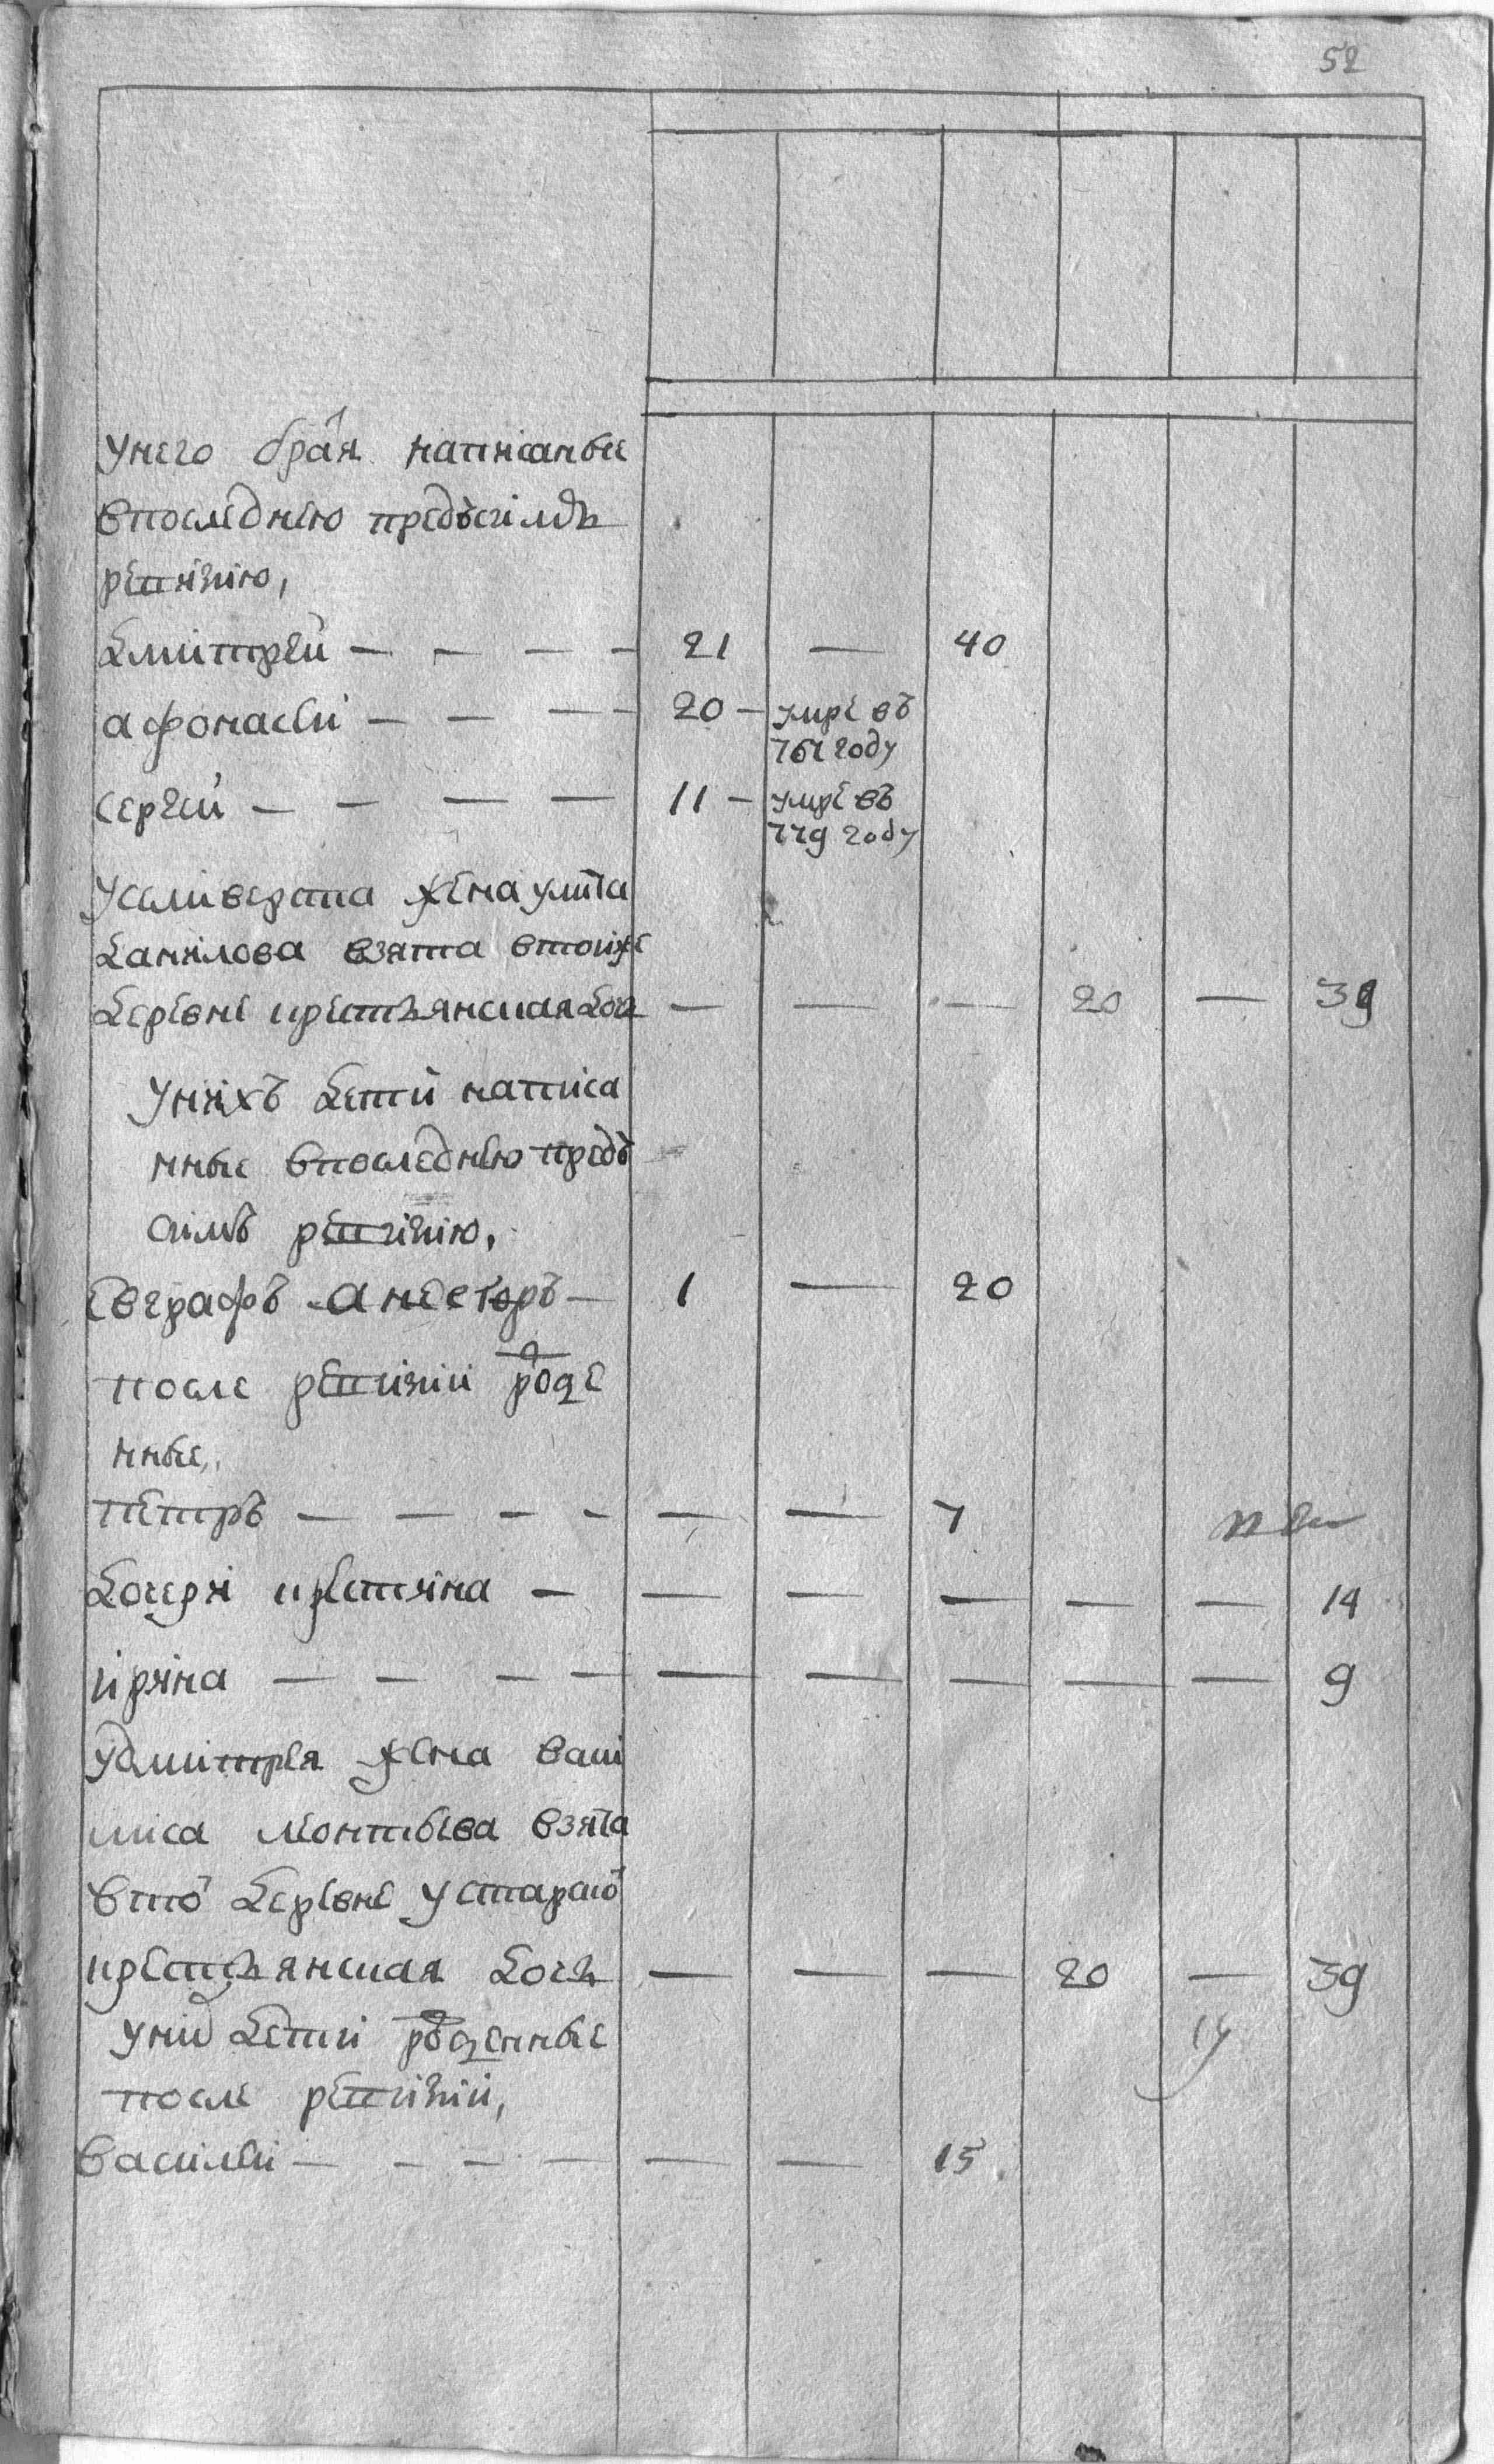 52
унего братя написаные
впоследнею предъсимъ
ревизию,
дмитрей — — — — 21 — 40
афонасеи — — — — 20 — умре въ
761 году
сергеи — — — — 11 — умре въ
779 году
уселиверста жена улита
данилова взята втоиже
деревне крестьянская дочь — — — 20 — 39
унихъ дети написа
нные впоследнею предъ
симъ ревизию,
евграфъ а несторъ — 1 — 20
после ревизии рожде
нные,
петръ — — — — — — 7
дочери крестина — — — — — — 14
ирина — — — — — — — — — 9
удмитрея жена васи
лиса леонтьева взята
втои деревне устараго
крестьянская дочь — — — 20 — 39
уних дети рожденные
после ревизии,
василеи — — — — — — 15